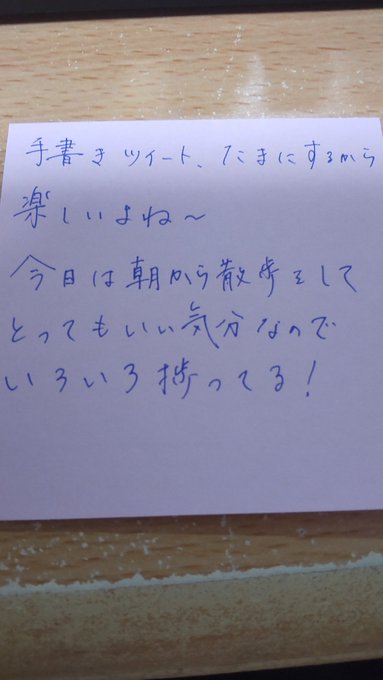 手書きツイート、たまにするから
楽しいよね〜
今日は朝から散歩をして
とってもいい気分なので
いろいろ捗ってる！